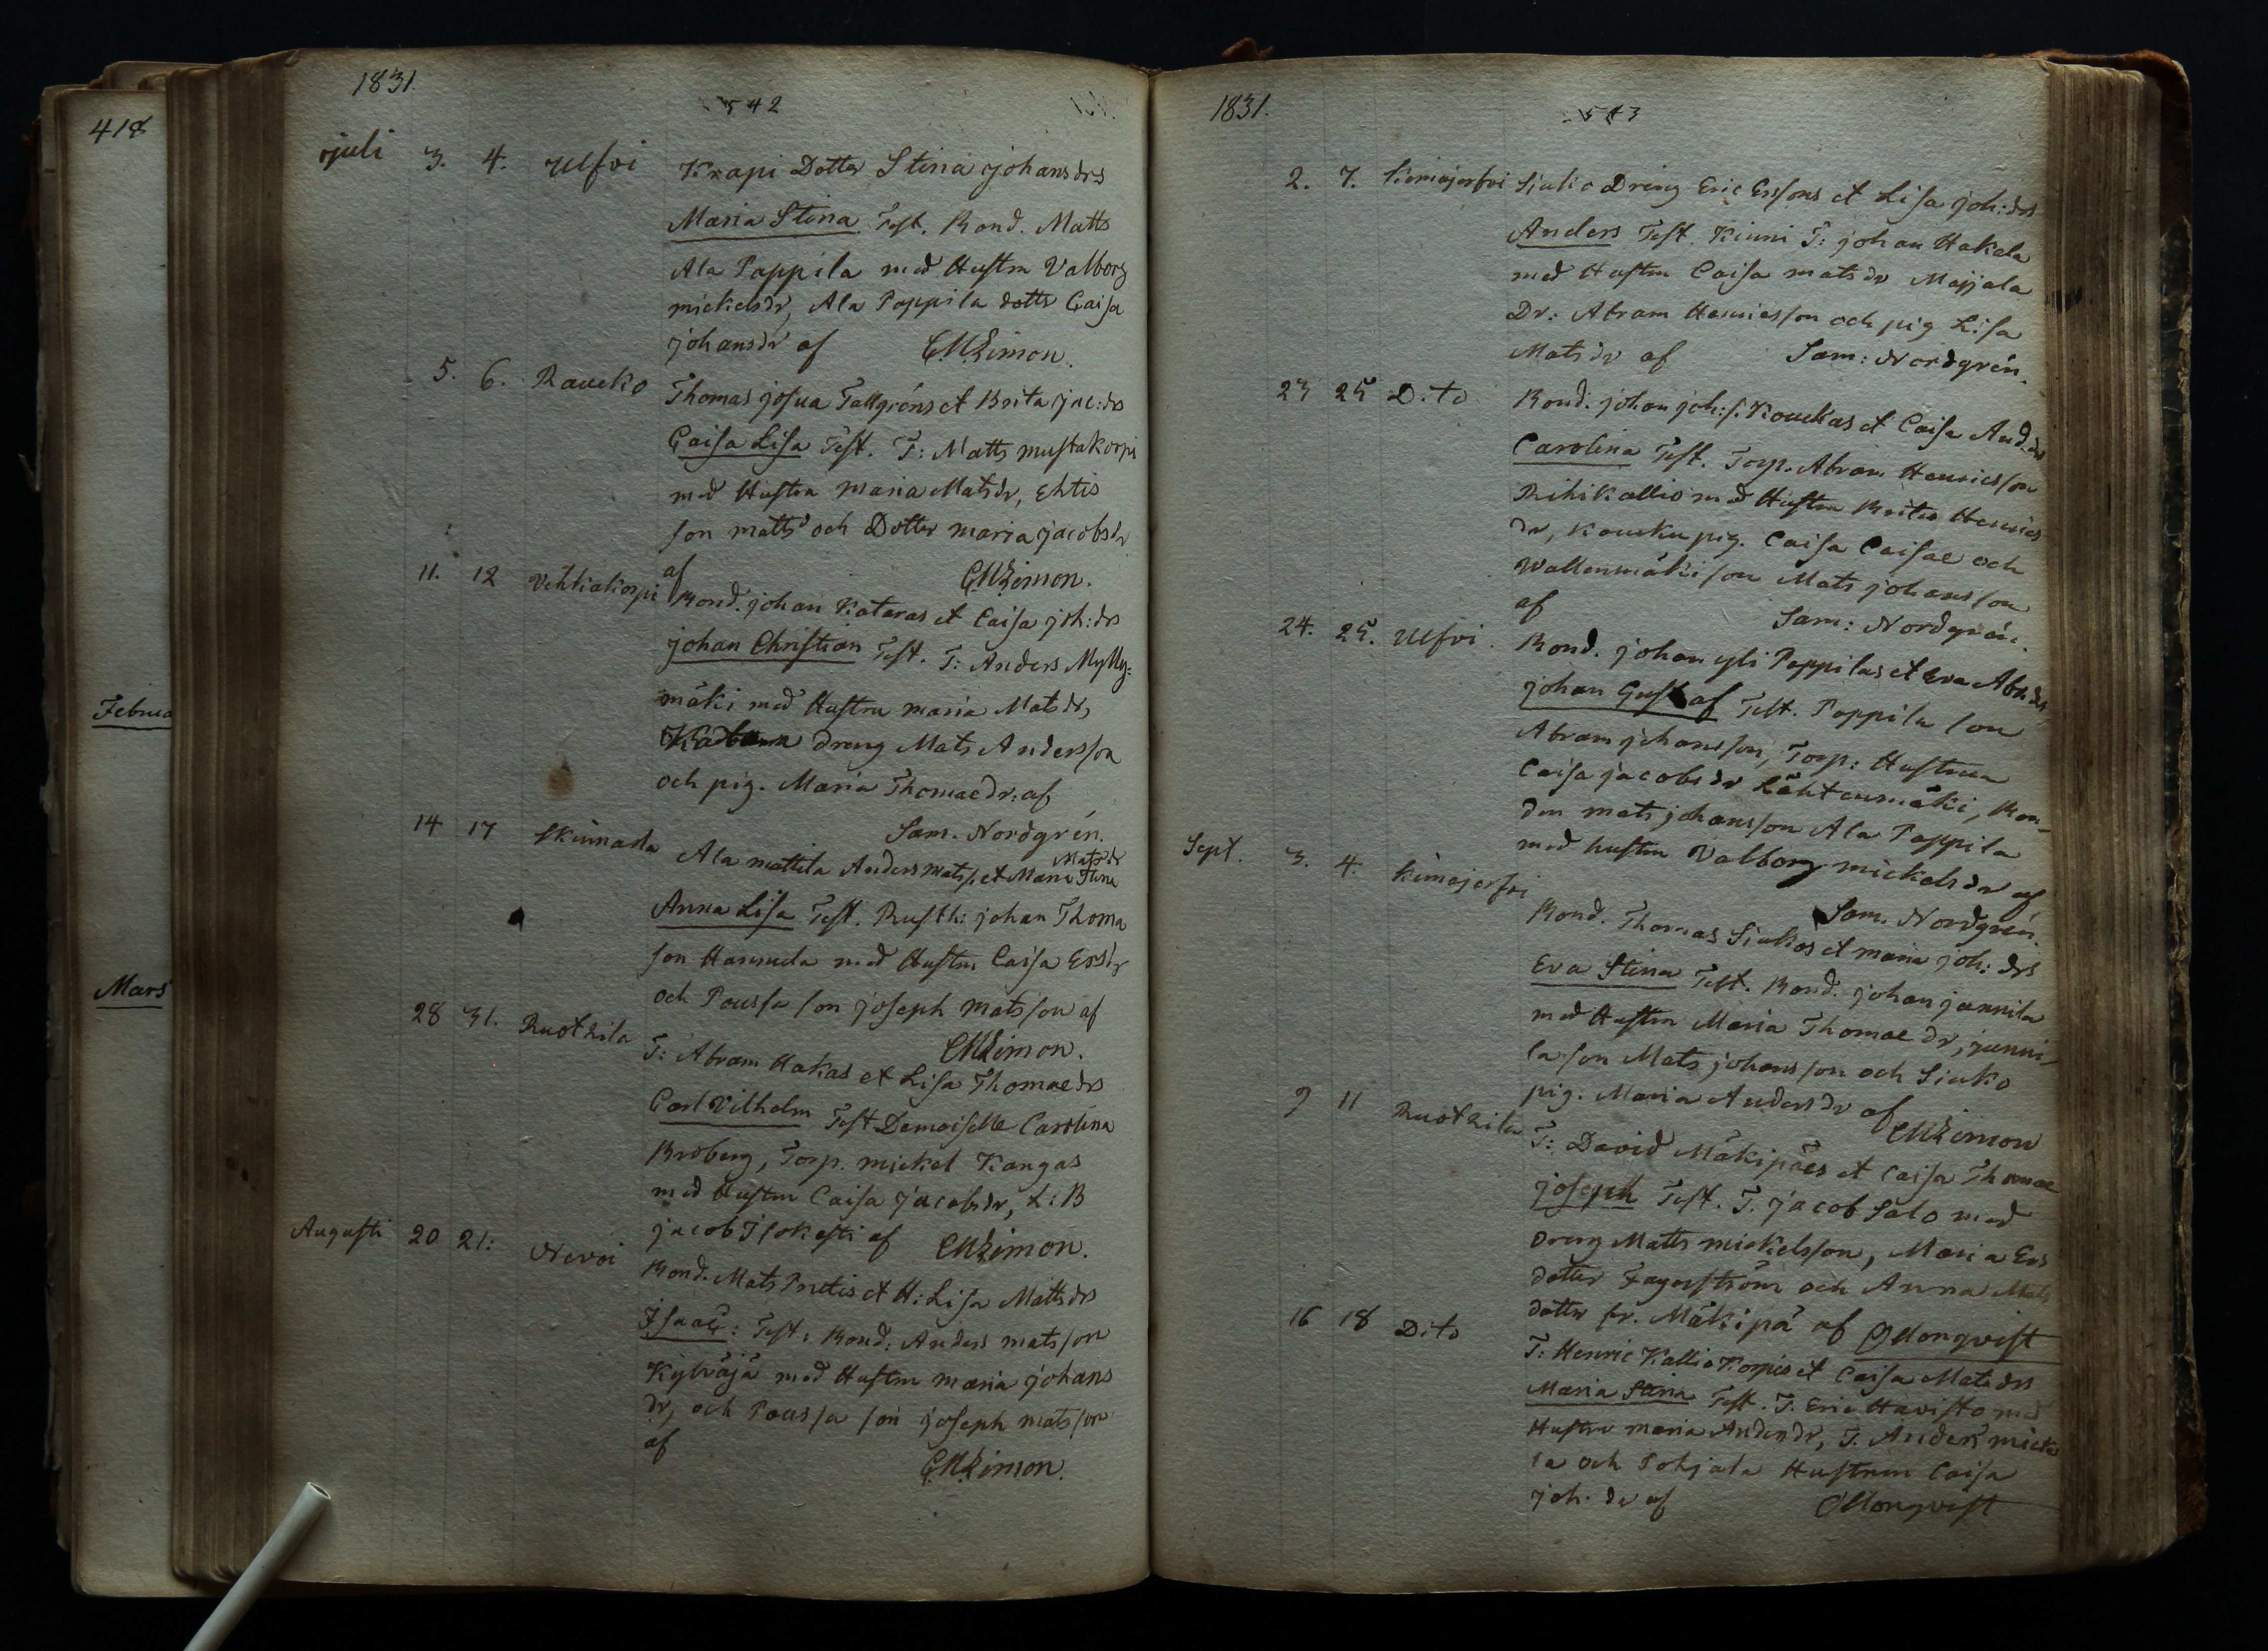 418
Februa
Mars
1831.
542
juli 3. 4. Ulfvi Krapi Dotter Stina johansdrs
Maria Stina Test. Bond. Matts
Ala Pappila med Hustru Valborg
mickelsdr, Ala Pappila dottr Caisa
johansdr af CMZimon.
5. 6. Raucko Thomas josua Tallgréns et Brita jac:drs
Caisa Lisa Test. T: Matts mustakorpi
med Hustru maria Matsdr, Ehtis
son matts och Dotter maria jacobsdr
af CMZimon.
11. 12 Vehkakorpi Bond. johan Kataras et Caisa joh:drs
johan Christian Test. T: Anders Mylly:
mäki med Hustru maria Matsdr,
dreng Mats Andersson
och pig. Maria Thomaedr: af
Sam. Nordgrén.
14 17 Skinnarla Ala mattila Anders mats s. et Maria Stina
Matsdr
Anna Lisa Test. Rusth: johan Thoma
son Hannula med Hustru Caisa Ersdr
och Poussa son joseph matsson af
CMZimon.
28 31. Ruotzila T: Abram Hakas et Lisa Thomaedrs
Carl Vilhelm Test Demoiselle Carolina
Broberg, Torp. mickel Kangas
med Hustru Caisa jacobsdr, L:B
jacob Isokesti af CMZimon.
Augusti 20 21: Nervoi Bond. Mats Prutis et H: Lisa Mattsdrs
Isaac: Test: Bond: Anders matsson
Kylväjä med Hustru maria johans
dr, och Poussa son joseph matsson
af
CMZimon.
1831.
543
2. 7. Kiimajerfvi Siuko Dreng Eric Ersons et Lisa joh:drs
Anders Test. Kinni T: johan Hakala
med Hustru Caisa matsdr Maijala
Dr: Abram Henricsson och pig Lisa
Matsdr af Sam: Nordgrén.
23 25 Dito Bond. johan joh:s. Kouckas et Caisa And.drs
Carolina Test. Torp. Abram Henricsson
Rihikallio med Hustru Brita Henrics
dr, Koucku pig. Caisa Caisae och
Wallenmäki son Mats johansson
af Sam: Nordgrén.
24. 25. Ulfvi. Bond. johan yli Pappilas et Eva Abr.drs
johan Gustaf Test. Pappila son
Abram johansson, Torp: Hustrun
Caisa jacobsdr Lähteenmäki, Bon-
den mats johansson Ala Pappila
med hustru Valborg mickelsdr af
Sam. Nordgrén.
Sept. 3. 4. Kimajerfvi Bond. Thomas Siukos et maria joh:drs
Eva Stina Test. Bond. johan junnila
med Hustru Maria Thomae dr, junni-
la son Mats johansson och Siuko
pig. Maria Andersdr af CMZimon
9 11 Ruotzila T: David Mäkipäes et Caisa Thomae
joseph Test. T. jacob Salo med
Dreng Matts mickelsson, Maria Ers
dotter Fagerström och Anna Mats
dotter fr. Mäkipä af CJMonqvist
16 18 Dito T: Henric Kallio Korpis et Caisa Matsdrs
Maria Stina Test. T. Eric Havisto med
Hustru maria Andersdr, T. Anders micke
la och Pohjala Hustrun Caisa
joh. dr af CJMonqvist